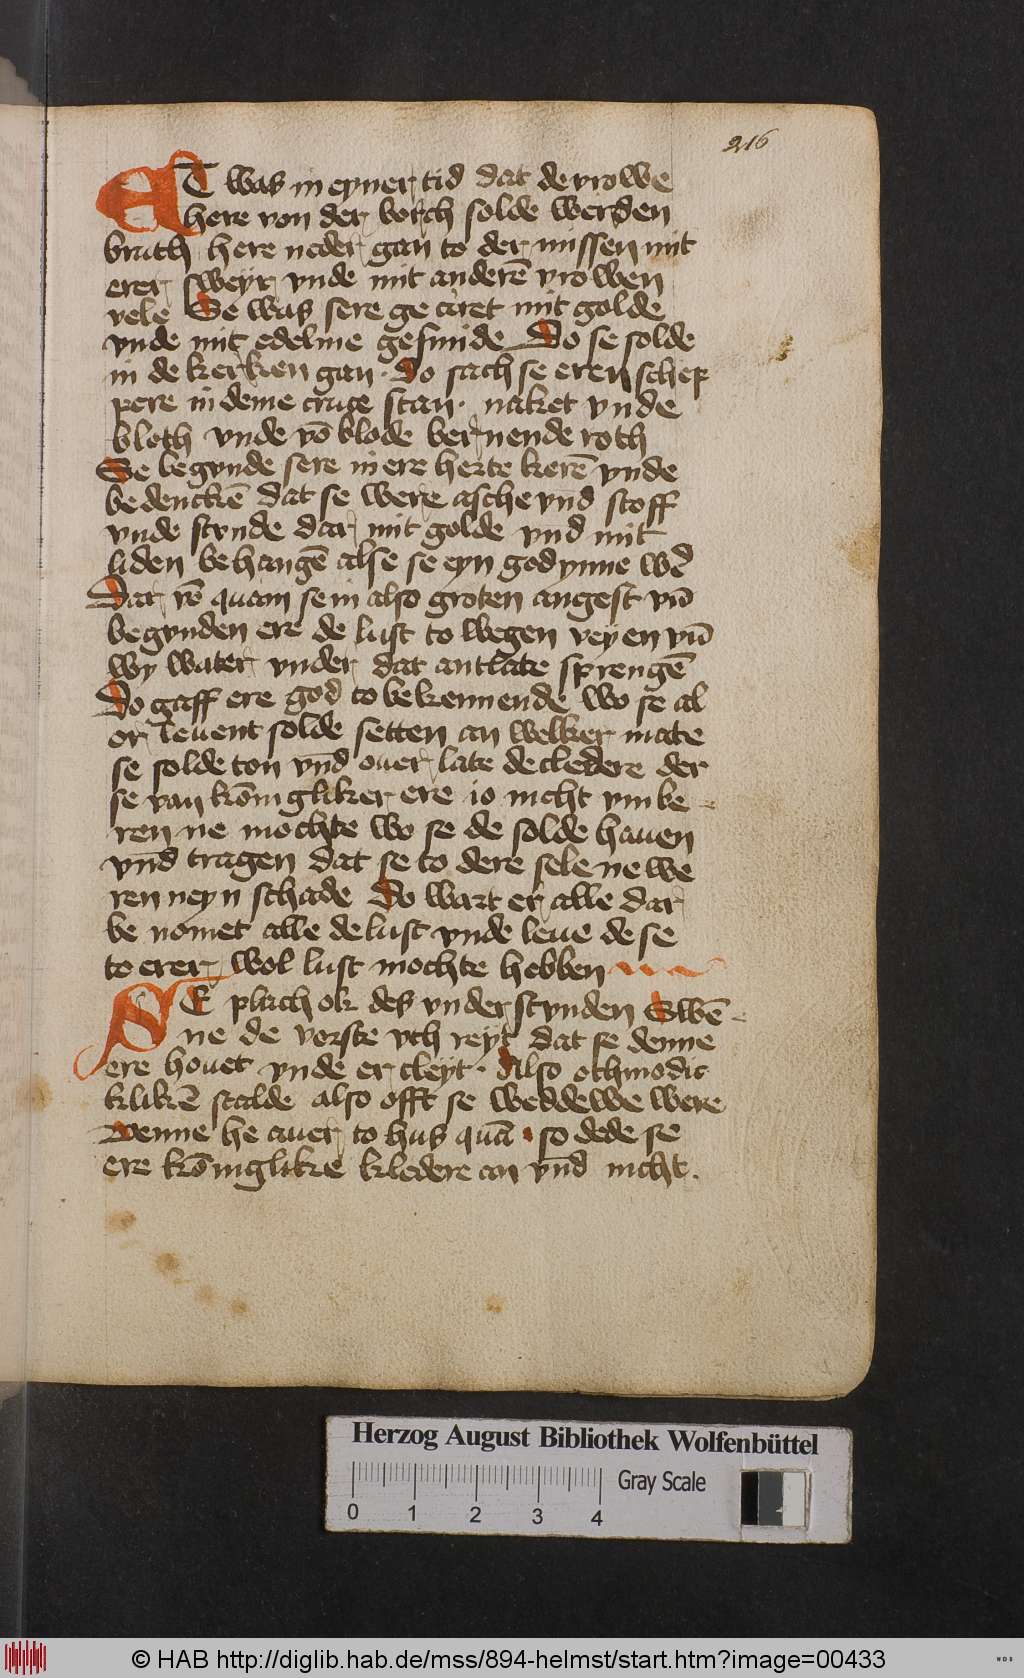 216
ET was in eyner tid dat de vrowe
here von der borch solde werden
brach here neder gan to der missen mit
erer sweyr vnde mit anderē vrowen
vele Se was sere ge ciret mit golde
vnde mit edelme gesmide Do se solde
in de kerken gan · do sach se eren schep
pere in deme cruce stan · naket vnde
bloth vnde vō blode bernende roth
Se begynde sere in ere herte kerē vnde
bedenckē dat se were asche vnd stoff
vnde stvnde dar mit golde vnd mit
siden behangē alse se eyn godynne wē
Dar vō quam se in also groten angest vñ
begvnden ere de lust to wegen veyen vñ
wy water vnder dat antlate sprengē
Do gaff ere god to bekennende wo se al
or leuent solde setten an welker mate
se solde ton vnd ouer late de cledere der
se van kōnigliker ere io nicht vmbe
ren ne mochte wo se de solde hauen
vnd tragen dat se to dere sele ne we
ren neyn schade Do wart er alle dar
be nomet alle de lust vnde leue de se
to erer wol lust mochte hebben
SE plach ok des vnder stvnden Swē
ne de vorste vth reyt dat se denne
ere houet vnde er cleyt · Also othmodic
klikē stalde also offt se weddewe were
Wenne he auer to hus quā · so dede se
ere kōninglike kledere an vnd nicht .
Herzog August Bibliothek Wolfenbüttel
Gray Scale
0 1 2 3 4
© HAB http://diglib.hab.de/mss/894-helmst/start.htm?image=00433